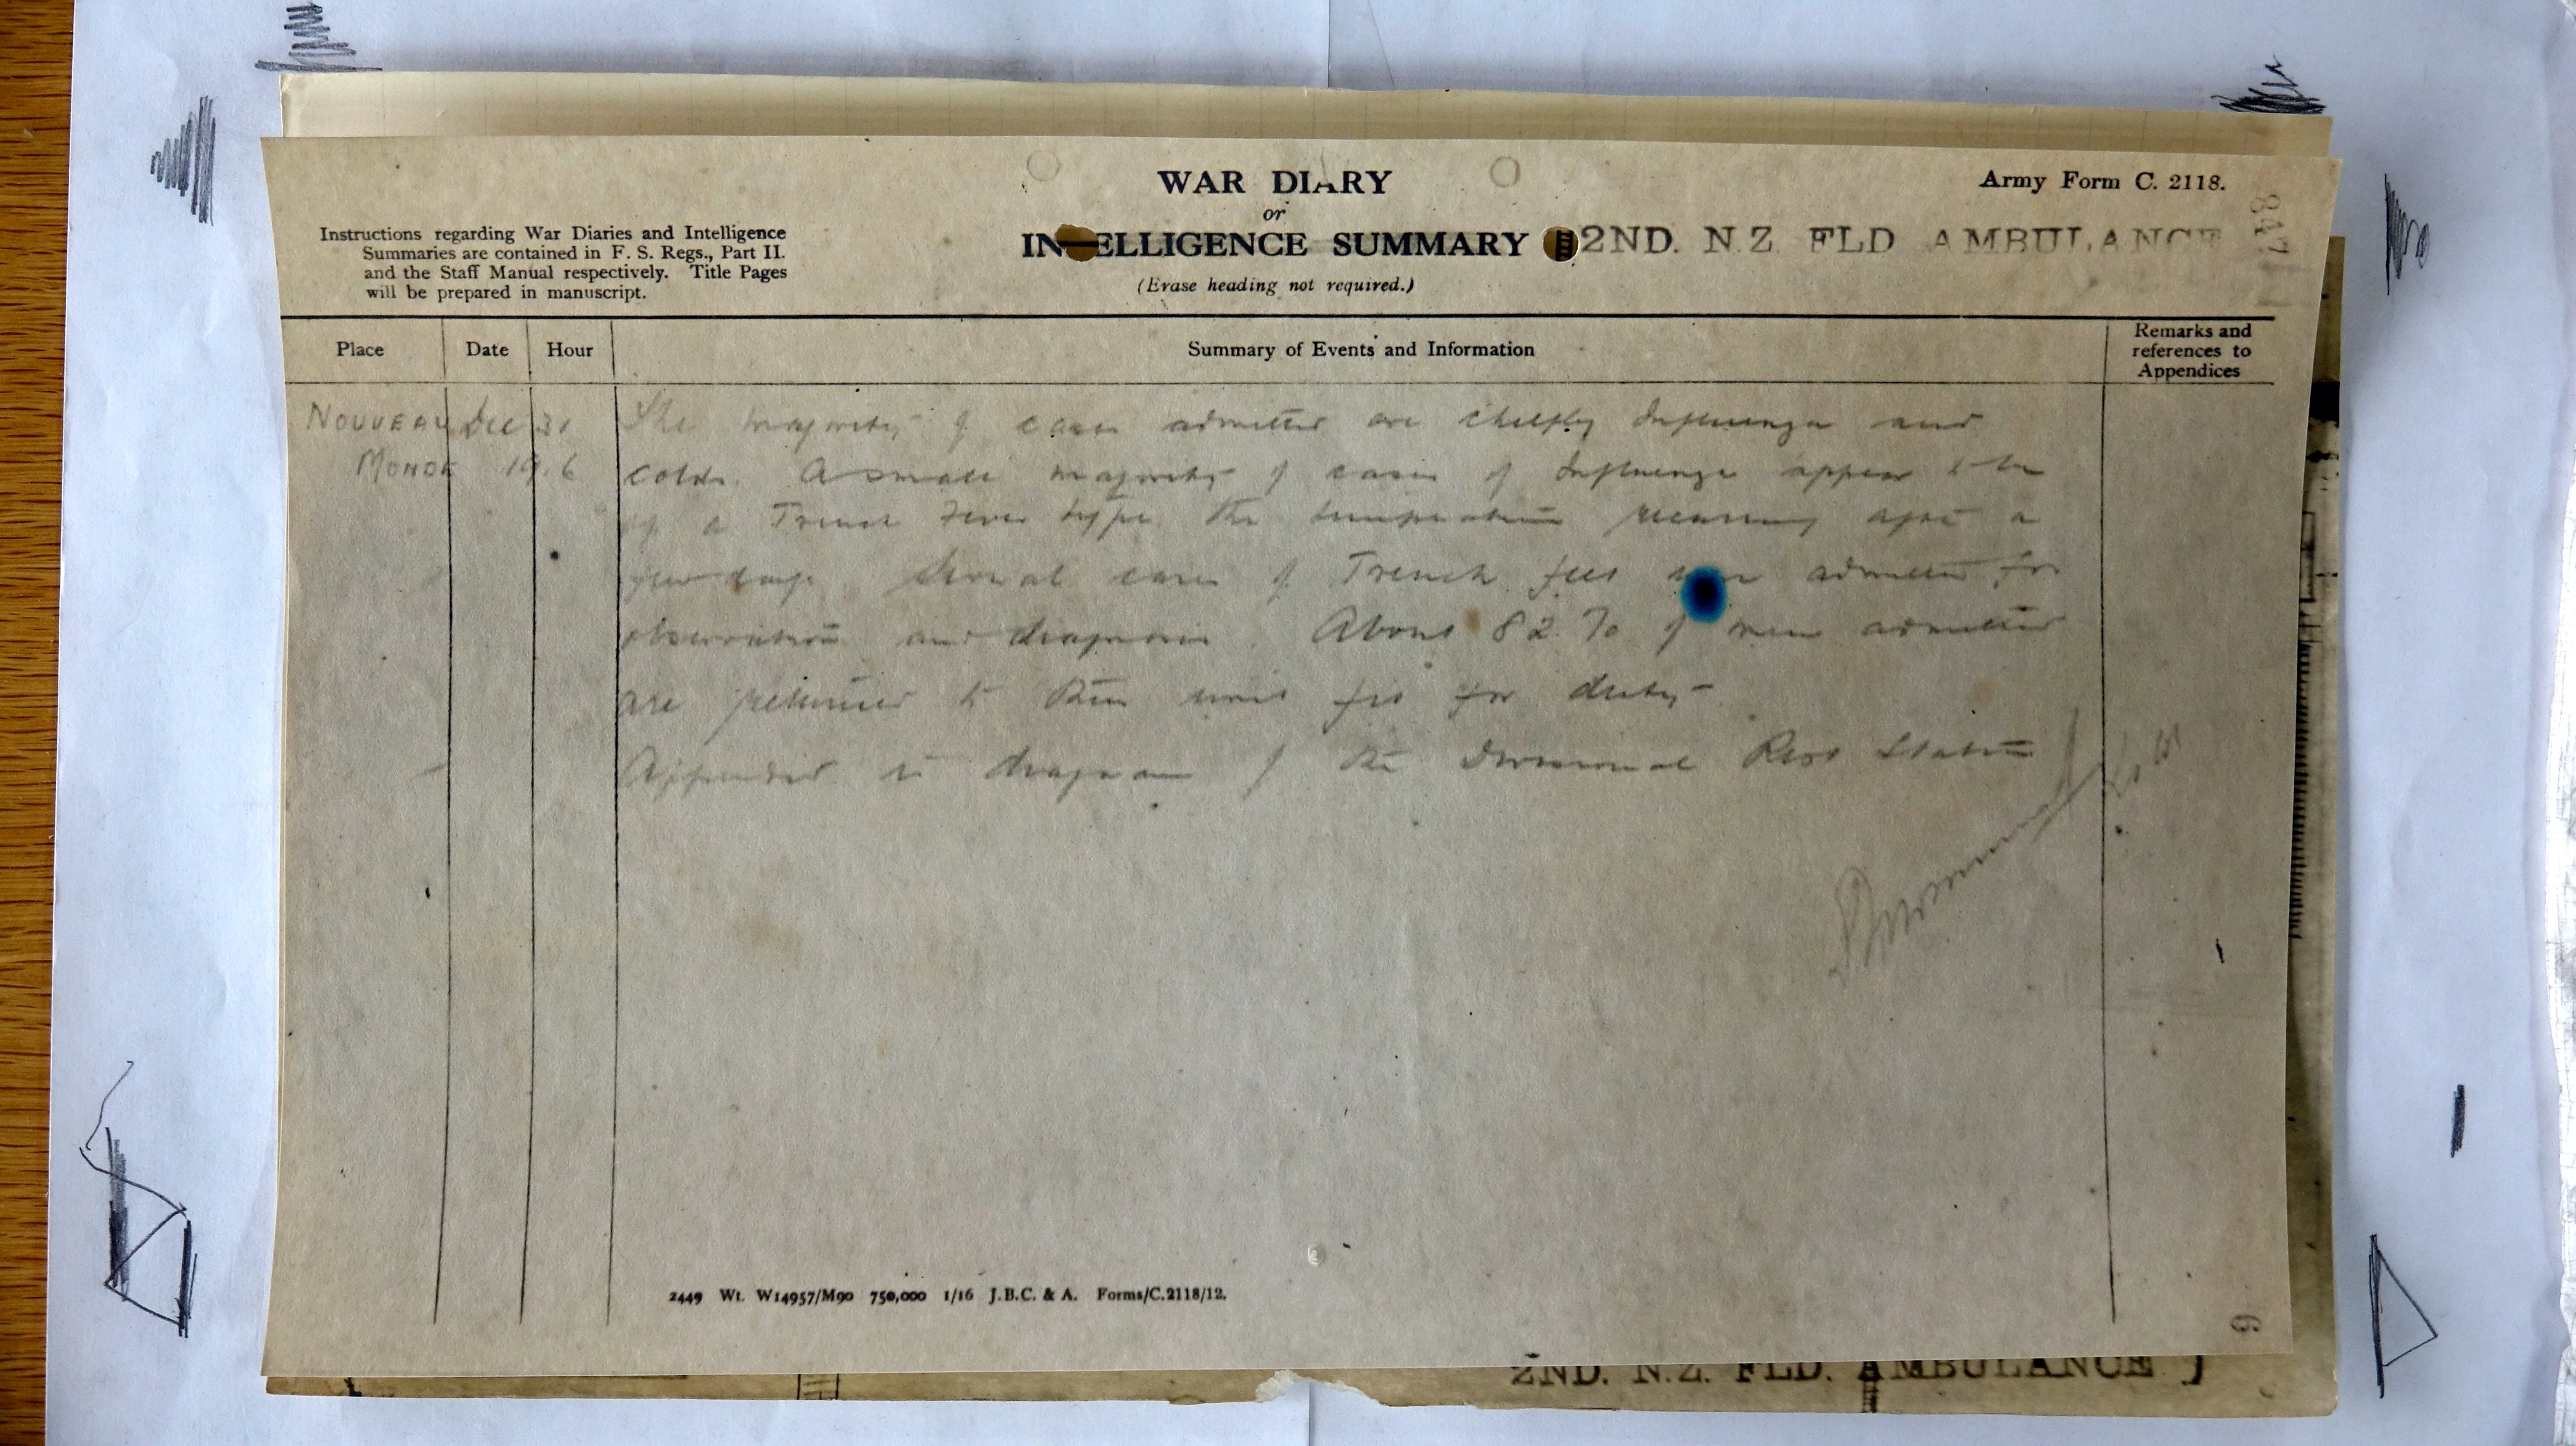 WAR DIARY
or
INTELLIGENCE SUMMARY
(Erase heading not required.)
Army Form C. 2118.
847
2ND. N.Z FLD AMBULANCE
Instructions regarding War Diaries and Intelligence
Summaries are contained in F. S. Regs., Part II.
and the Staff Manual respectively. Title Pages
will be prepared in manuscript.
Place Date Hour Summary of Events and Information Remarks and references to Appendices
NOUVEAU Dec 31 The majority of cases admitted are chiefly Influenza and
MONDE 1916 colds. A small majority of cases of Influenza appear to be
of a Trench Fever type the temperature recurring after a
few days. Several cases of Trench feet were admitted for
observation and diagnosis. About 82 % of men admitted
are returned to their unit fit for duty
Appended is diagram of the Divisional Rest Station
2449 Wt. W14957/M90 750,000 1/16 J.B.C. & A. Forms/C.2118/12.
6
2ND. N.Z. FLD. AMBULANCE